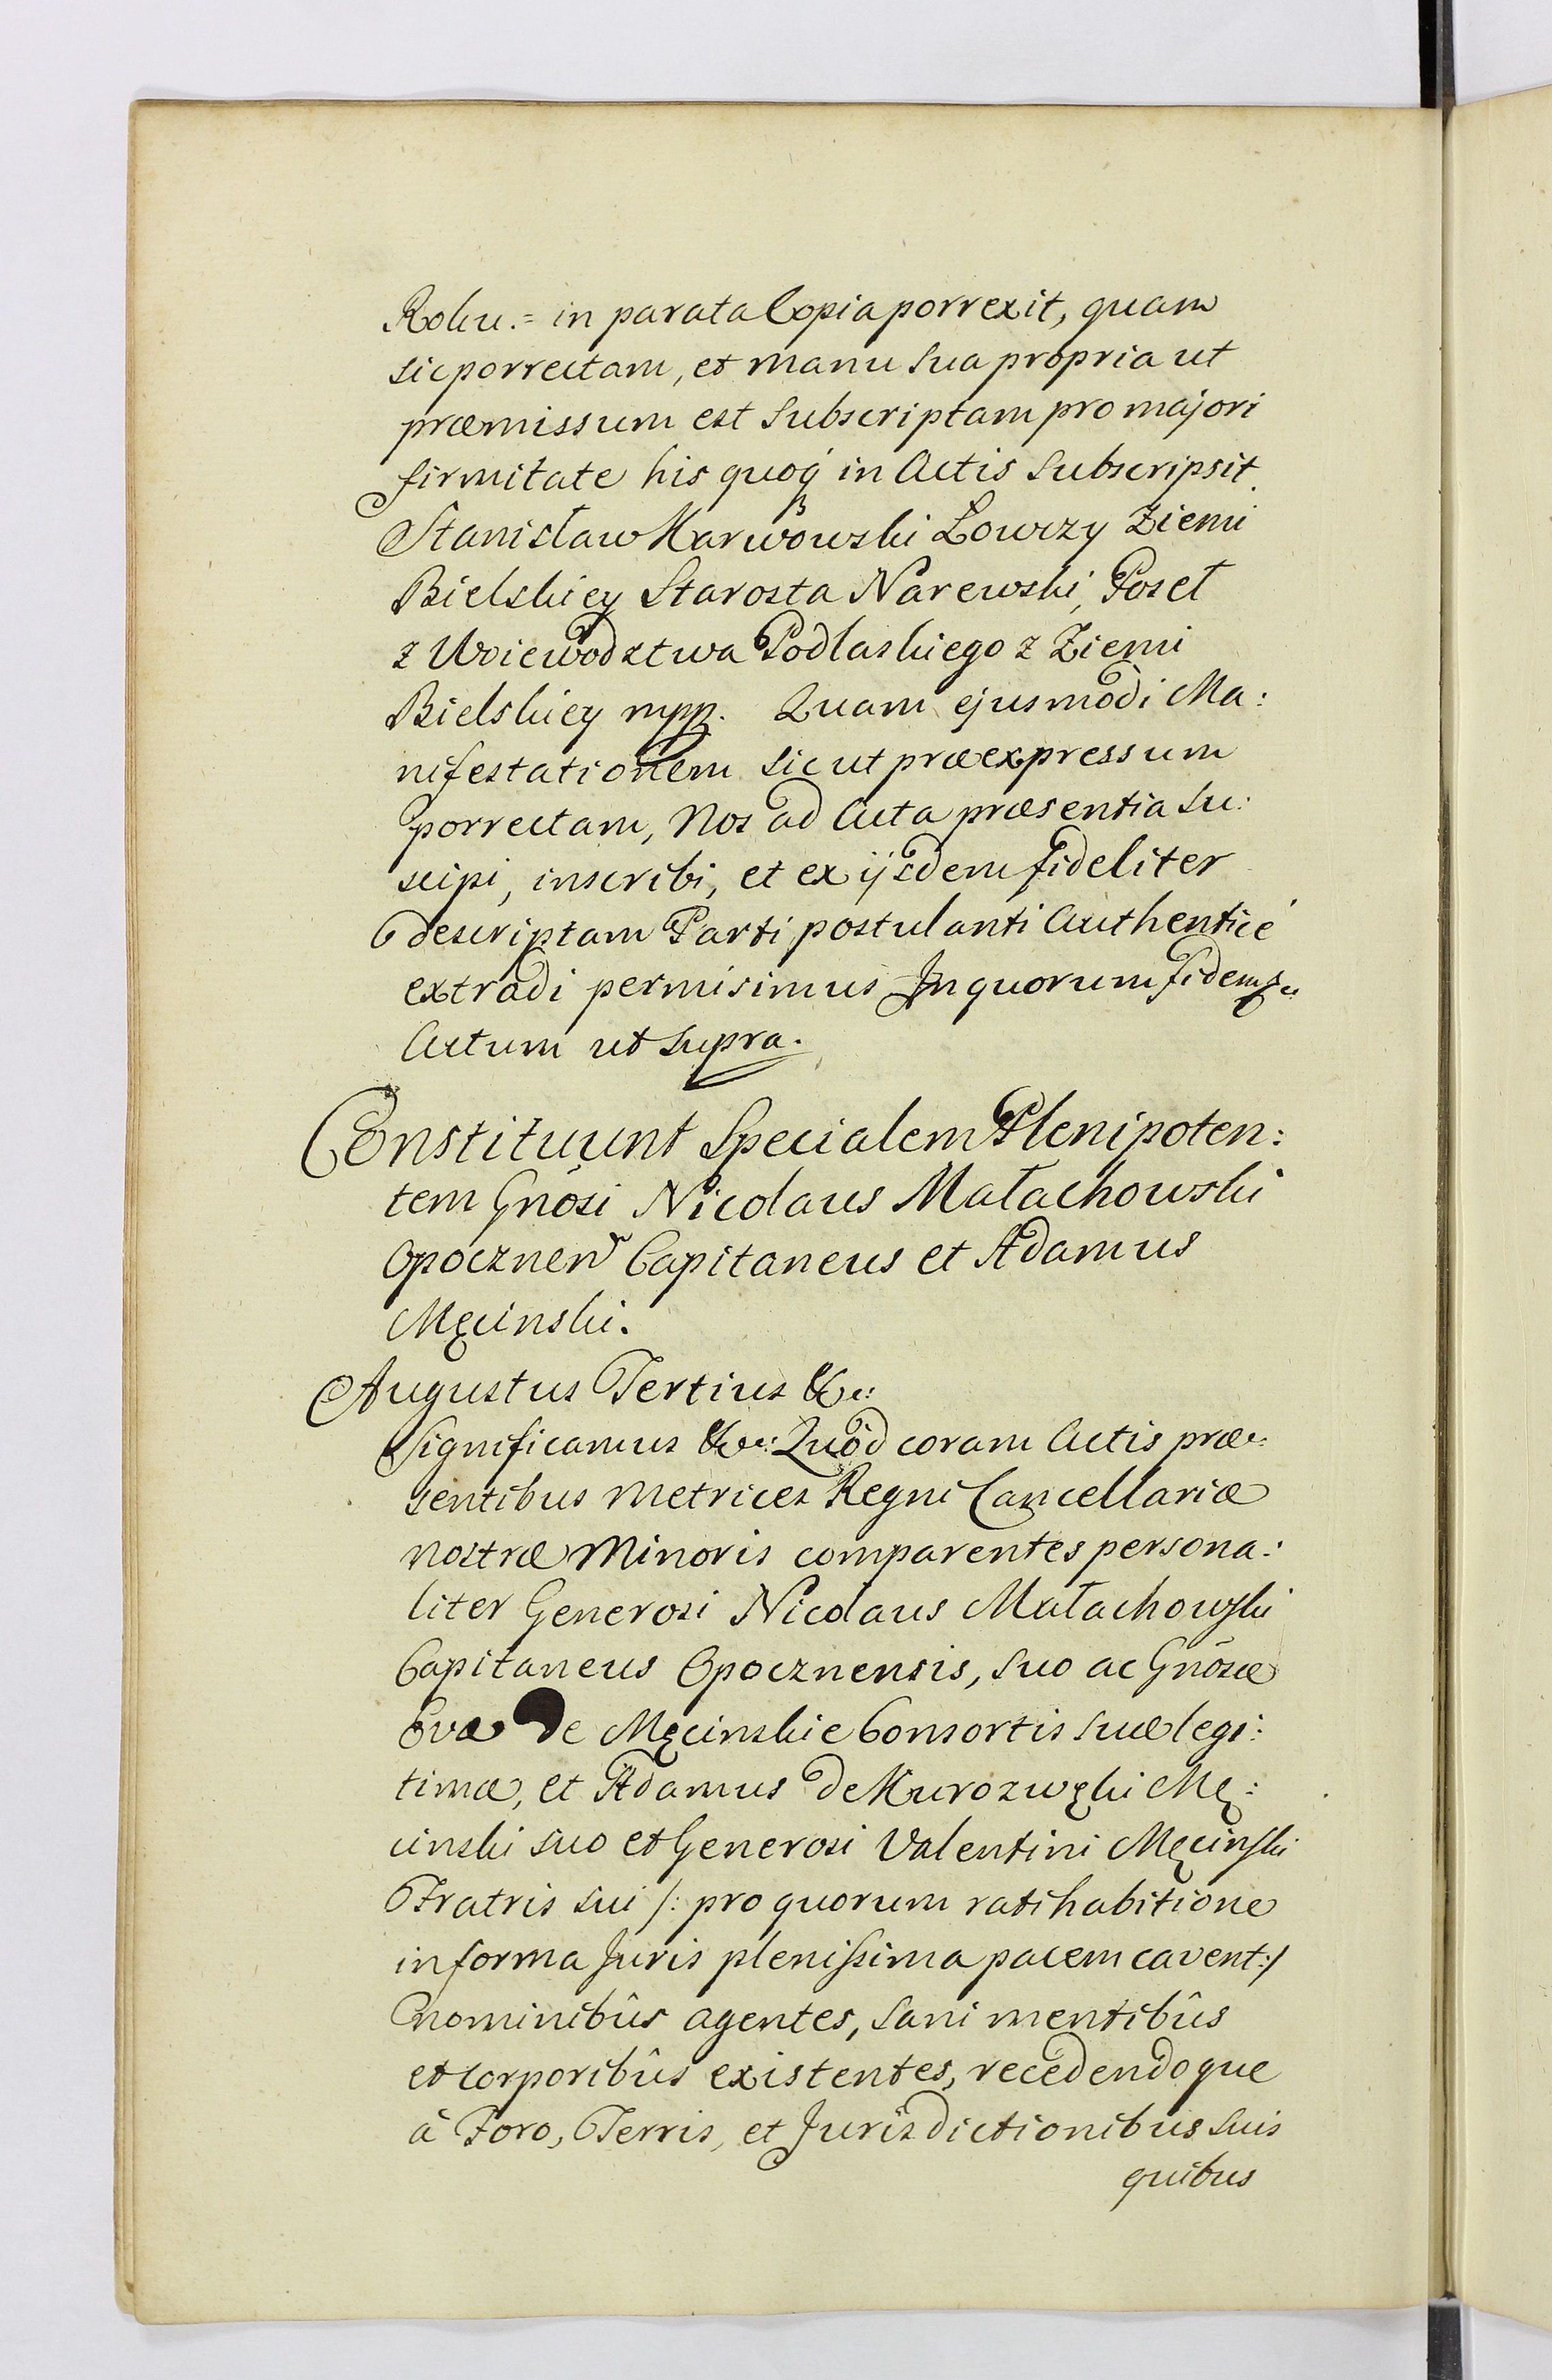 Roku.= in parata Copia porrexit, quam
sic porrectam, et manu sua propria ut
præmissum est subscriptam pro majori
firmitate his quoq in Actis subscripsit.
Stanisław Karwowski Łowczy Ziemi
Bielskiey Starosta Narewski, Poseł
z Woiewodztwa Podlaskiego z Ziemi
Bielskiey mpp. Quam ejusmodi Ma:
nifestationem sicut præexpressum
porrectam, Nos ad Acta præsentia su:
scipi, inscribi, et ex ijsdem fideliter
descriptam Parti postulanti Authenticé
extradi permisimus In quorum fidem
Actum ut supra.
Constituunt Specialem Plenipoten:
tem Gnosi Nicolaus Małachowski
Opocznen Capitaneus et Adamus
Męcinski.
Augustus Tertius &c:
Significamus &c: Quôd coram Actis præ:
sentibus Metrices Regni Cancellariæ
nostræ Minoris comparentes persona:
liter Generosi Nicolaus Małachowski
Capitaneus Opocznensis, suo ac Gnosæ
Evæ de Męcinskie Consortis suæ legi:
timæ, et Adamus de Kurozwęki Mę:
cinski suo et Generosi Valentini Męcinski
Fratris sui /: pro quorum ratihabitione
in forma Juris plenissima pacem cavent:/
nominibûs agentes, sani mentibûs
et corporibûs existentes, recedendoque
à Foro, Terris, et Jurisdictionibus suis
quibus